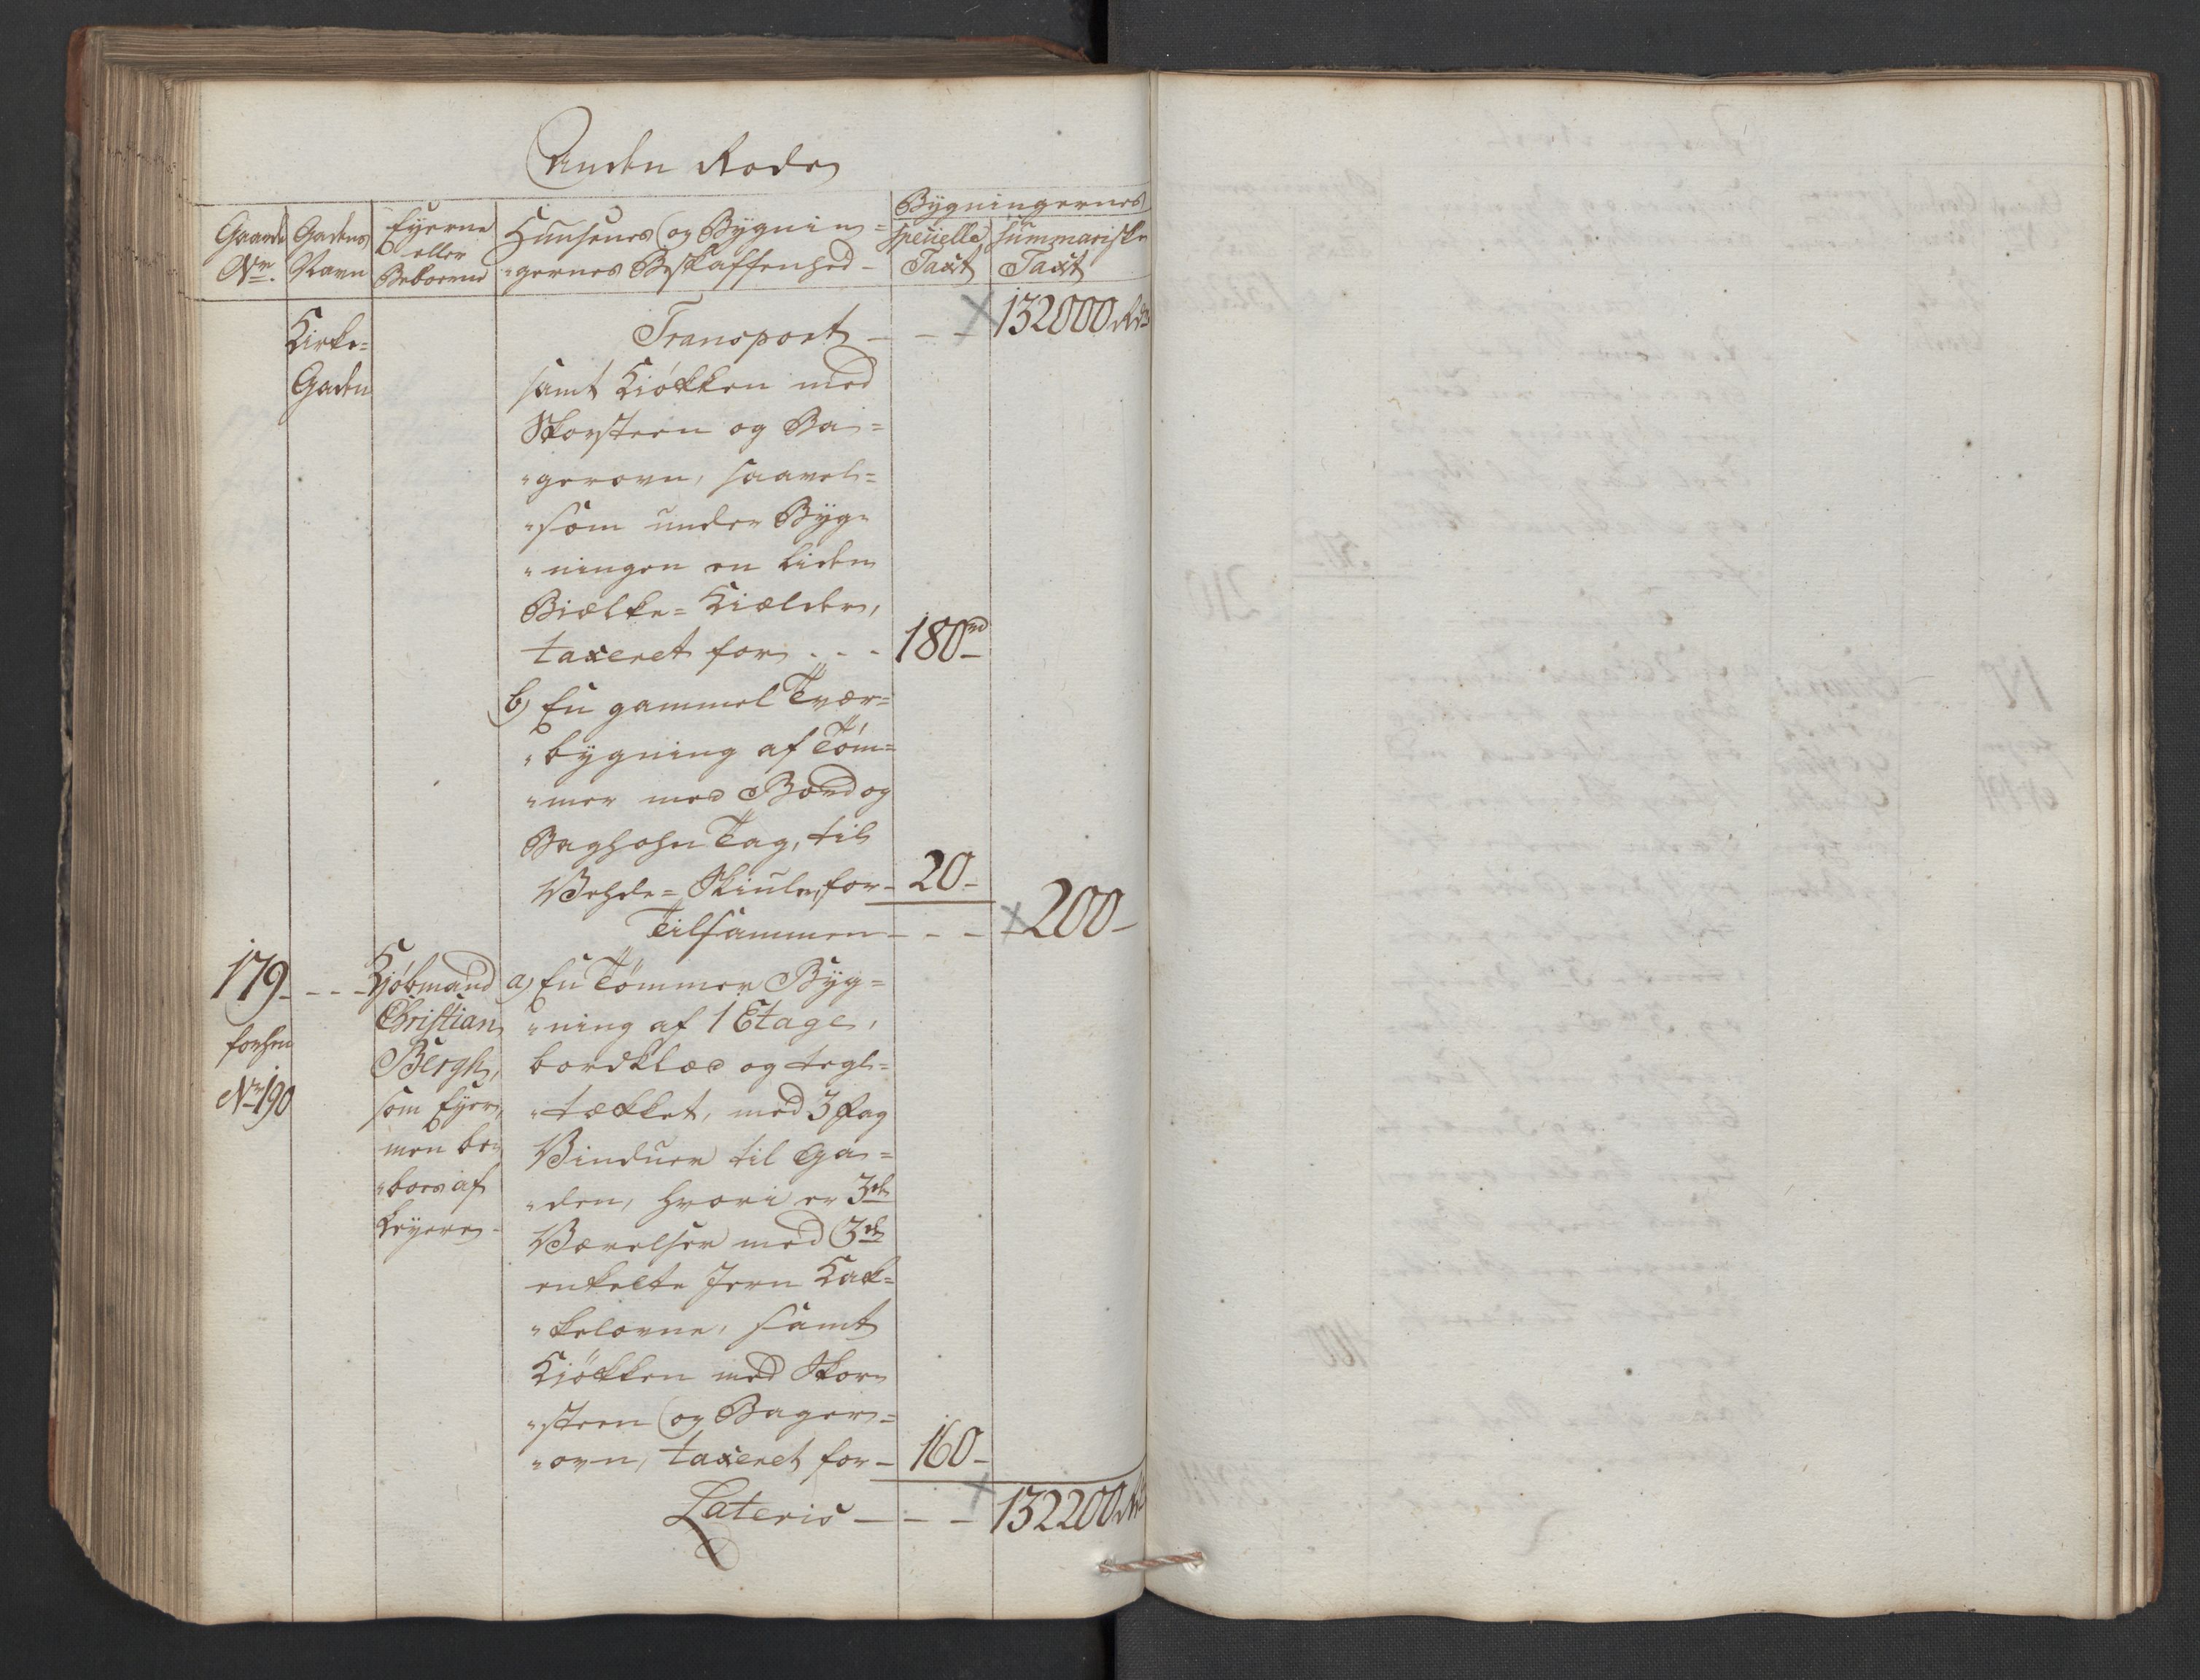 Anden Rode
Gaards Nr. | Gadens Navn | Eyerne eller Beboerne | Huusenes og Bygnin= „gernes Beskaffenhed | Bygningernes specielle Taxt | summariske Taxt
Kirke=
Gaden
Transport - - - 132000 Rd
samt Kiøkken med
Skorsteen og Ba=
„gerovn, saavel=
„som under Byg=
„ningen en liden
Biælke=Kielder,
taxeret for - - - 180 rd
b) En gammel Tvær=
„bygning af Töm=
„mer med Bord og
Baghohn Tag, til
Vehde=Skiule, for - 20 -
Tilsammen - - - 200 -
179 - - -
forhen
No 190
Kjøbmand
Christian
Bergh,
som Eyer,
men be=
„boes af
Leyere -
a) En Tömmer Byg=
„ning af 1 Etage,
bordklæd og tegl=
„tækket, med 3 Fag
Vinduer til Ga=
„den, hvori er 3de
Værelser med 3de
enkelte Jern Kak=
„kelovne, samt
Kiökken med Skor=
„steen og Bager=
„ovn, taxeret for - 160 -
Lateris - - - 132200 Rd